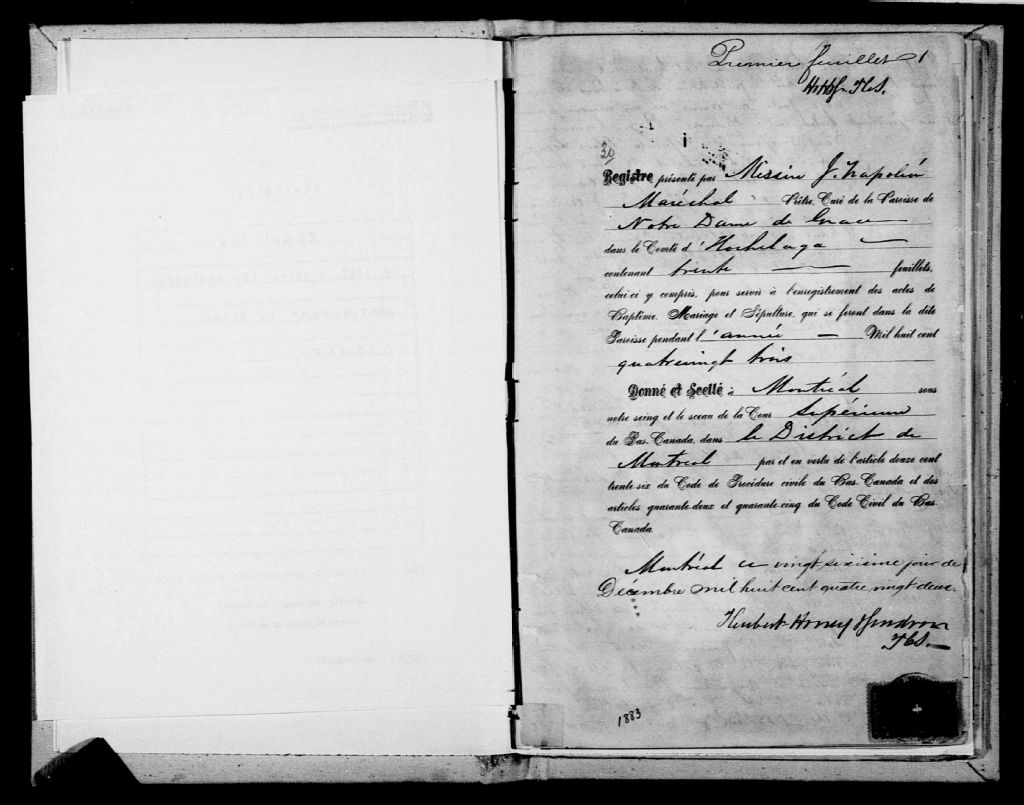 Premier feuillet 1
HH&G P.C.S.
30
Registre présenté par Messire J. Napoléon
Maréchal Prêtre, Curé de la Paroisse de
Notre Dame de Grace
dans le Comté d'Hochelaga
contenant trente feuillets,
celui-ci y compris, pour servir à l'enregistrement des actes de
Baptême, Mariage et Sépulture, qui se feront dans la dite
Paroisse pendant l'année Mil huit cent
quatrevingt trois
Donné et Scellé à Montréal sous
notre seing et le sceau de la Cour Supérieure
du Bas-Canada, dans le District de
Montreal par et en vertu de l'article douze cent
trente-six du Code de Procédure civile du Bas-Canada et des
articles quarante-deux et quarante-cinq du Code Civil du Bas-
Canada.
Montréal ce vingt sixième jour de
Décembre mil huit cent quatre vingt deux.
1883